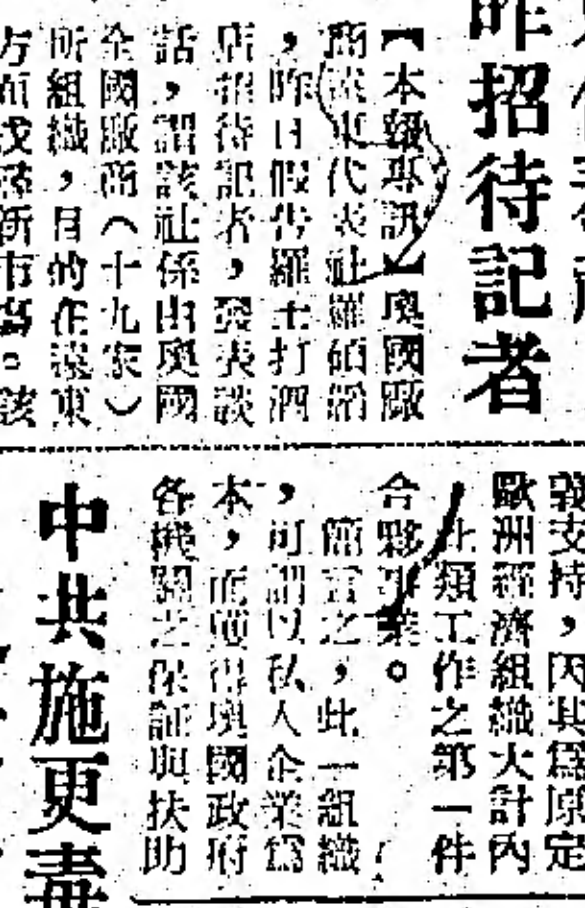 昨招待記者
【本報專訊】奧國廠
商遠東代表社羅碩濟
，昨日假告羅士打酒
店招待記者，發表談
話，謂該社係由奧國
全國廠商（十九家）
所組織，目的在遠東
方面找尋新市場。該
支持，因其為原定
歐洲經濟組織大計內
此類工作之第一件
合夥事業。
簡言之，此一組織
，可謂以私人企業為
本，而獲得奧國政府
各機關之保証與扶助
中共施更毒